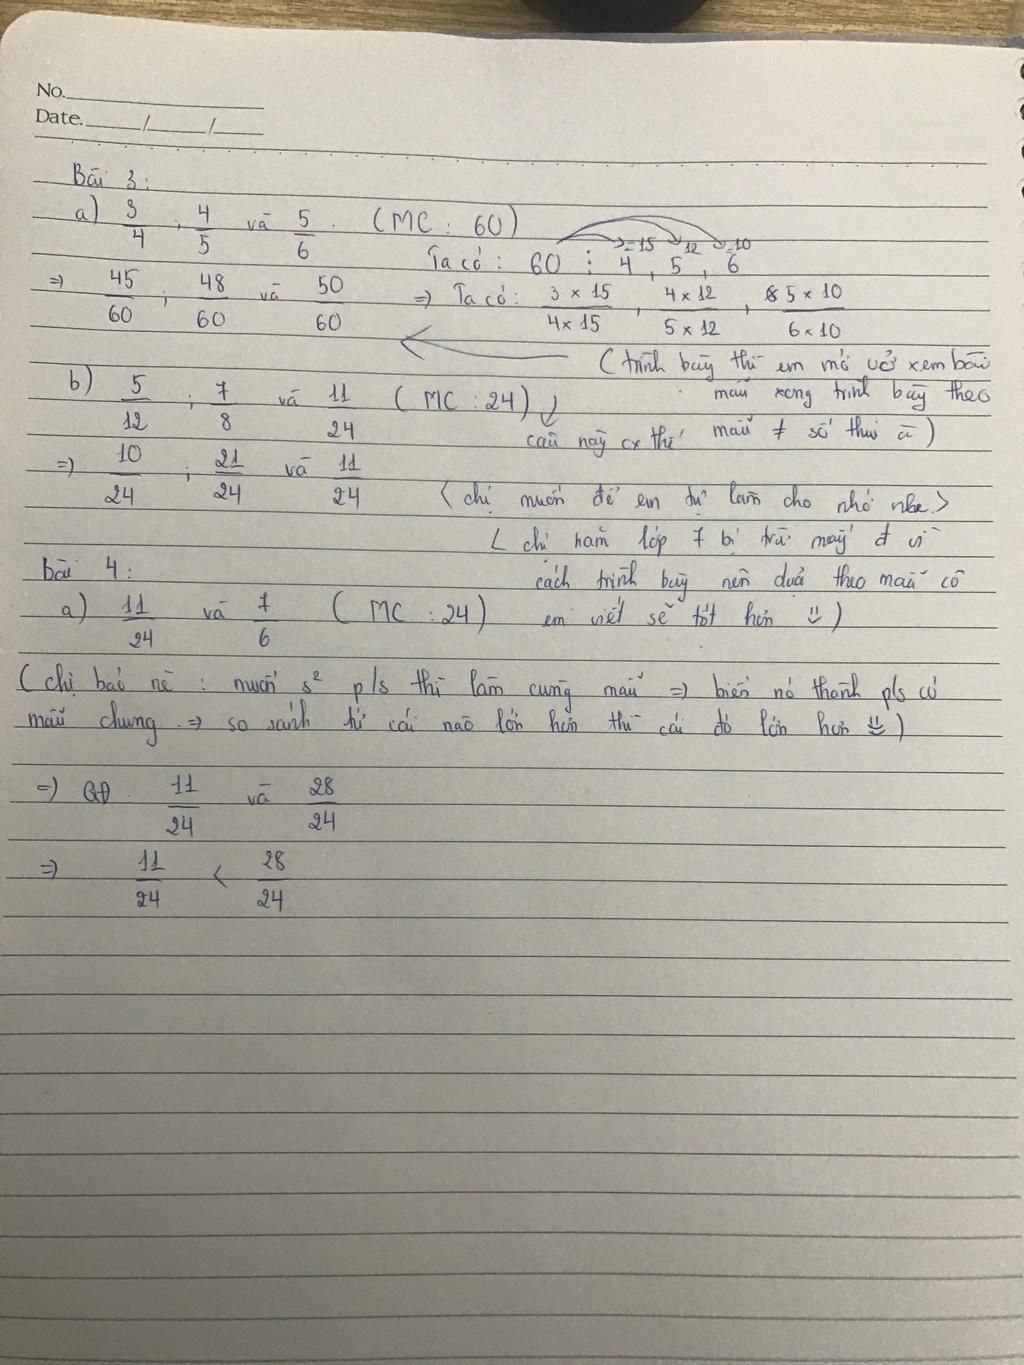 No.
Date. / /
Bài 3:
a) 3/4 ; 4/5 và 5/6 . (MC : 60)
Ta có : 60 : 4 , 5 , 6 =15 12 =10
=> 45/60 ; 48/60 và 50/60 => Ta có : 3 x 15/4 x 15 , 4 x 12/5 x 12 , 5 x 10/6 x 10
(trình bày thì em mở vở xem bài
b) 5/12 ; 7/8 và 11/24 (MC : 24) mẫu xong trình bày theo
câu này cx thế mẫu ≠ số thui à)
=> 10/24 ; 21/24 và 11/24 <chị muốn để em tự làm cho nhớ nhe>
< chị năm lớp 7 bị trừ mấy đ vì
Bài 4: cách trình bày nên dựa theo mẫu cô
a) 11/24 và 7/6 (MC : 24) em viết sẽ tốt hơn :))
(chị bảo nè : muốn s² p/s thì làm cùng mẫu => biến nó thành p/s có
mẫu chung => so sánh tử cái nào lớn hơn thì cái đó lớn hơn :))
=> QĐ 11/24 và 28/24
=> 11/24 < 28/24